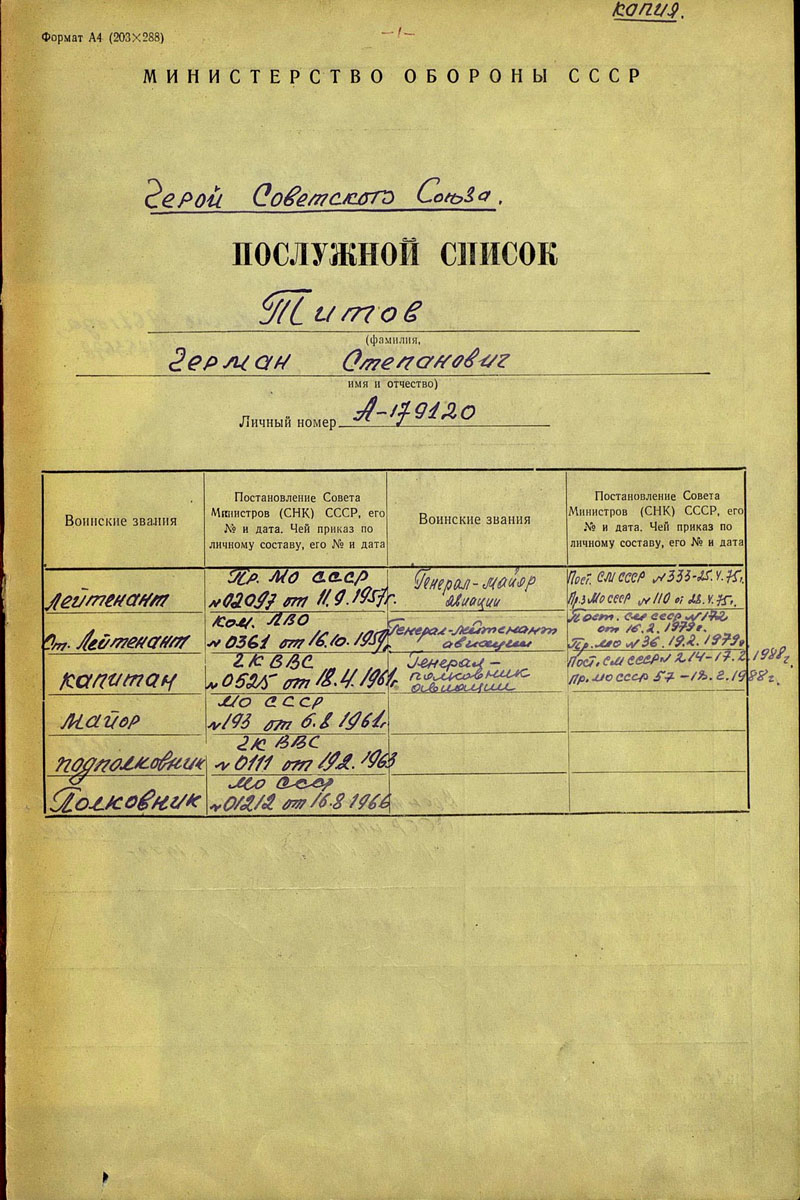 копия.
Формат А4 (203×288)
—1—
МИНИСТЕРСТВО ОБОРОНЫ СССР
Герой Советского Союза.
ПОСЛУЖНОЙ СПИСОК
Титов
(фамилия,
Герман Степанович
имя и отчество)
Личный номер А-179120
Воинские звания
Постановление Совета
Министров (СНК) СССР, его
№ и дата. Чей приказ по
личному составу, его № и дата
Воинские звания
Постановление Совета
Министров (СНК) СССР, его
№ и дата. Чей приказ по
личному составу, его № и дата
Лейтенант
Пр. МО СССР
№02097 от 11.9.1957г.
Генерал-майор
авиации
Пост. СМ СССР №333-25.V.75г.
Пр. МО СССР №110 от 28.V.75г.
Ст. Лейтенант
Ком. ЛВО
№0361 от 16.10.1959г.
Генерал-лейтенант
авиации
Пост. СМ СССР №172
от 16.2.1979г.
Пр. МО №36. 19.2.1979г.
капитан
ГК ВВС
№0525 от 18.4.1961г.
Генерал-
полковник
авиации
Пост. СМ СССР №214-17.2.1988г.
Пр. МО СССР 57-18.2.1988г.
майор
МО СССР
№193 от 6.8.1961г.
подполковник
ГК ВВС
№0111 от 19.2.1963
Полковник
МО СССР
№01212 от 16.8.1966